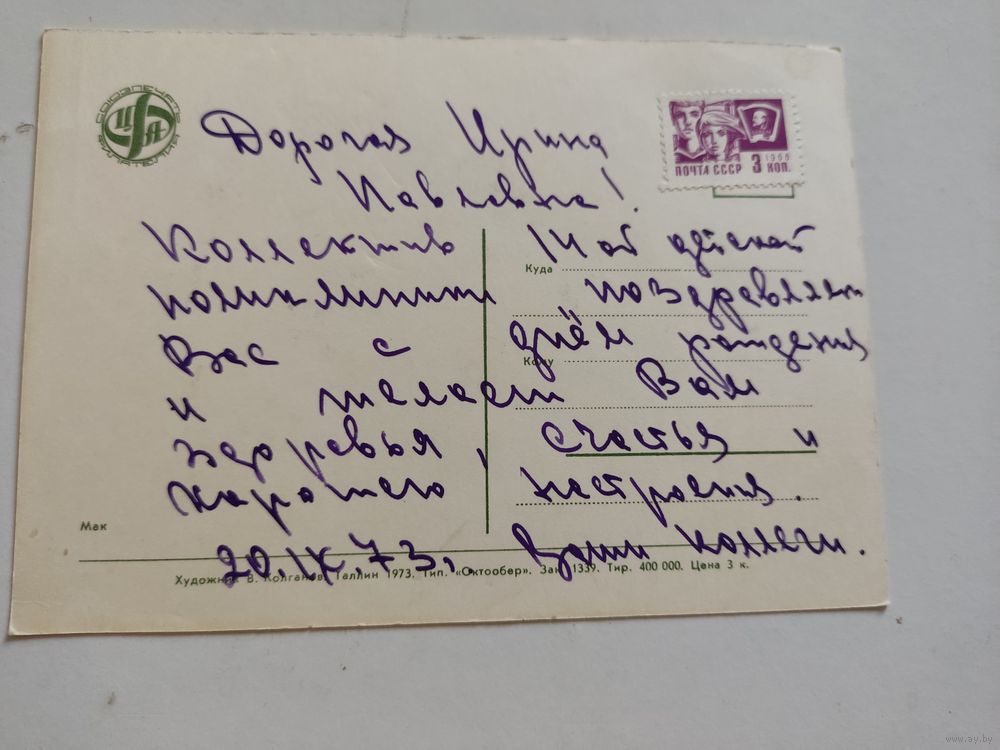 СОЮЗПЕЧАТЬ
ЦФА
ФИЛАТЕЛИЯ
ПОЧТА СССР 3 КОП.
1966
Дорогая Ирина
Павловна!
Коллектив 14ой детской
поликлиники поздравляет
Вас с днём рождения
и желает Вам
здоровья, счастья и
хорошего настроения.
20.IX.73г. Ваши коллеги.
Куда
Кому
Мак
Художник В. Колганов. Таллин 1973. Тип. «Октообер». Зак. 1339. Тир. 400 000. Цена 3 к.
www.ay.by